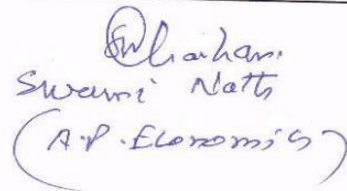 Swami Nath
(A.P. Economics)